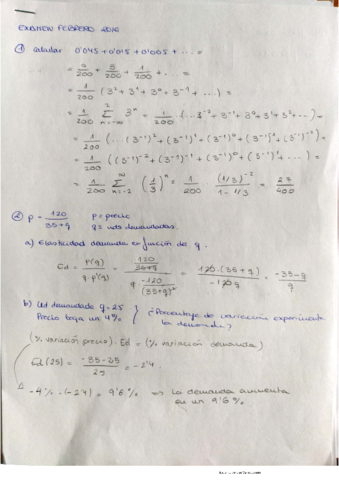 EXAMEN FEBRERO 2016
① Calcular 0'045 + 0'015 + 0'005 + ... =
= 9/200 + 3/200 + 1/200 + ... =
= 1/200 (3² + 3¹ + 3⁰ + 3⁻¹ + ...) =
= 1/200 Σ 3ⁿ = 1/200 (... 3⁻² + 3⁻¹ + 3⁰ + 3¹ + 3² ...) =
= 1/200 (... (3⁻¹)² + (3⁻¹)¹ + (3⁻¹)⁰ + (3⁻¹)⁻¹ + (3⁻¹)⁻²) =
= 1/200 ((3⁻¹)⁻² + (3⁻¹)⁻¹ + (3⁻¹)⁰ + (3⁻¹)¹ + ...) =
= 1/200 Σ n=-2 ∞ (1/3)ⁿ = 1/200 · (1/3)⁻² / 1 - 1/3 = 27/400
② P = 120/35+q P = precio
q = uds demandadas.
a) Elasticidad demanda en función de q.
Ed = P(q) / q · P'(q) = 120/35+q / q · -120/(35+q)² = 120 · (35+q) / -120q = -35-q / q
b) Ud demandada q = 25
Precio baja un 4%
¿Porcentaje de variación experimenta
la demanda?
(% variación precio) · Ed = (% variación demanda)
Ed (25) = -35-25 / 25 = -2'4
-4% · (-2'4) = 9'6% ⇒ La demanda aumenta
en un 9'6%